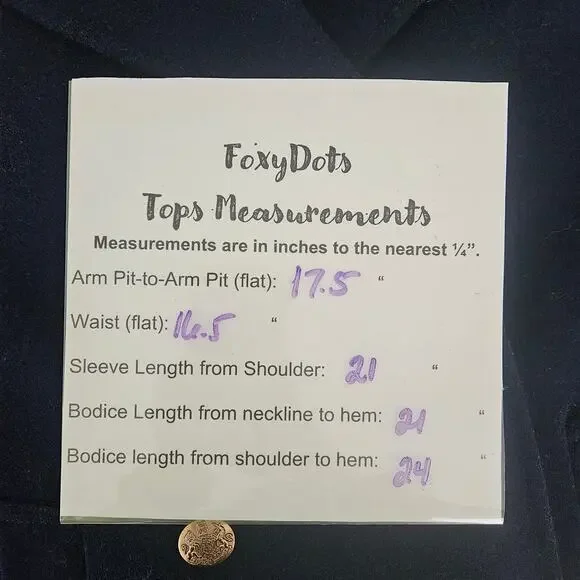 FoxyDots
Tops Measurements
Measurements are in inches to the nearest ¼”.
Arm Pit-to-Arm Pit (flat): 17.5 “
Waist (flat): 16.5 “
Sleeve Length from Shoulder: 21 “
Bodice Length from neckline to hem: 21 “
Bodice length from shoulder to hem: 24 “